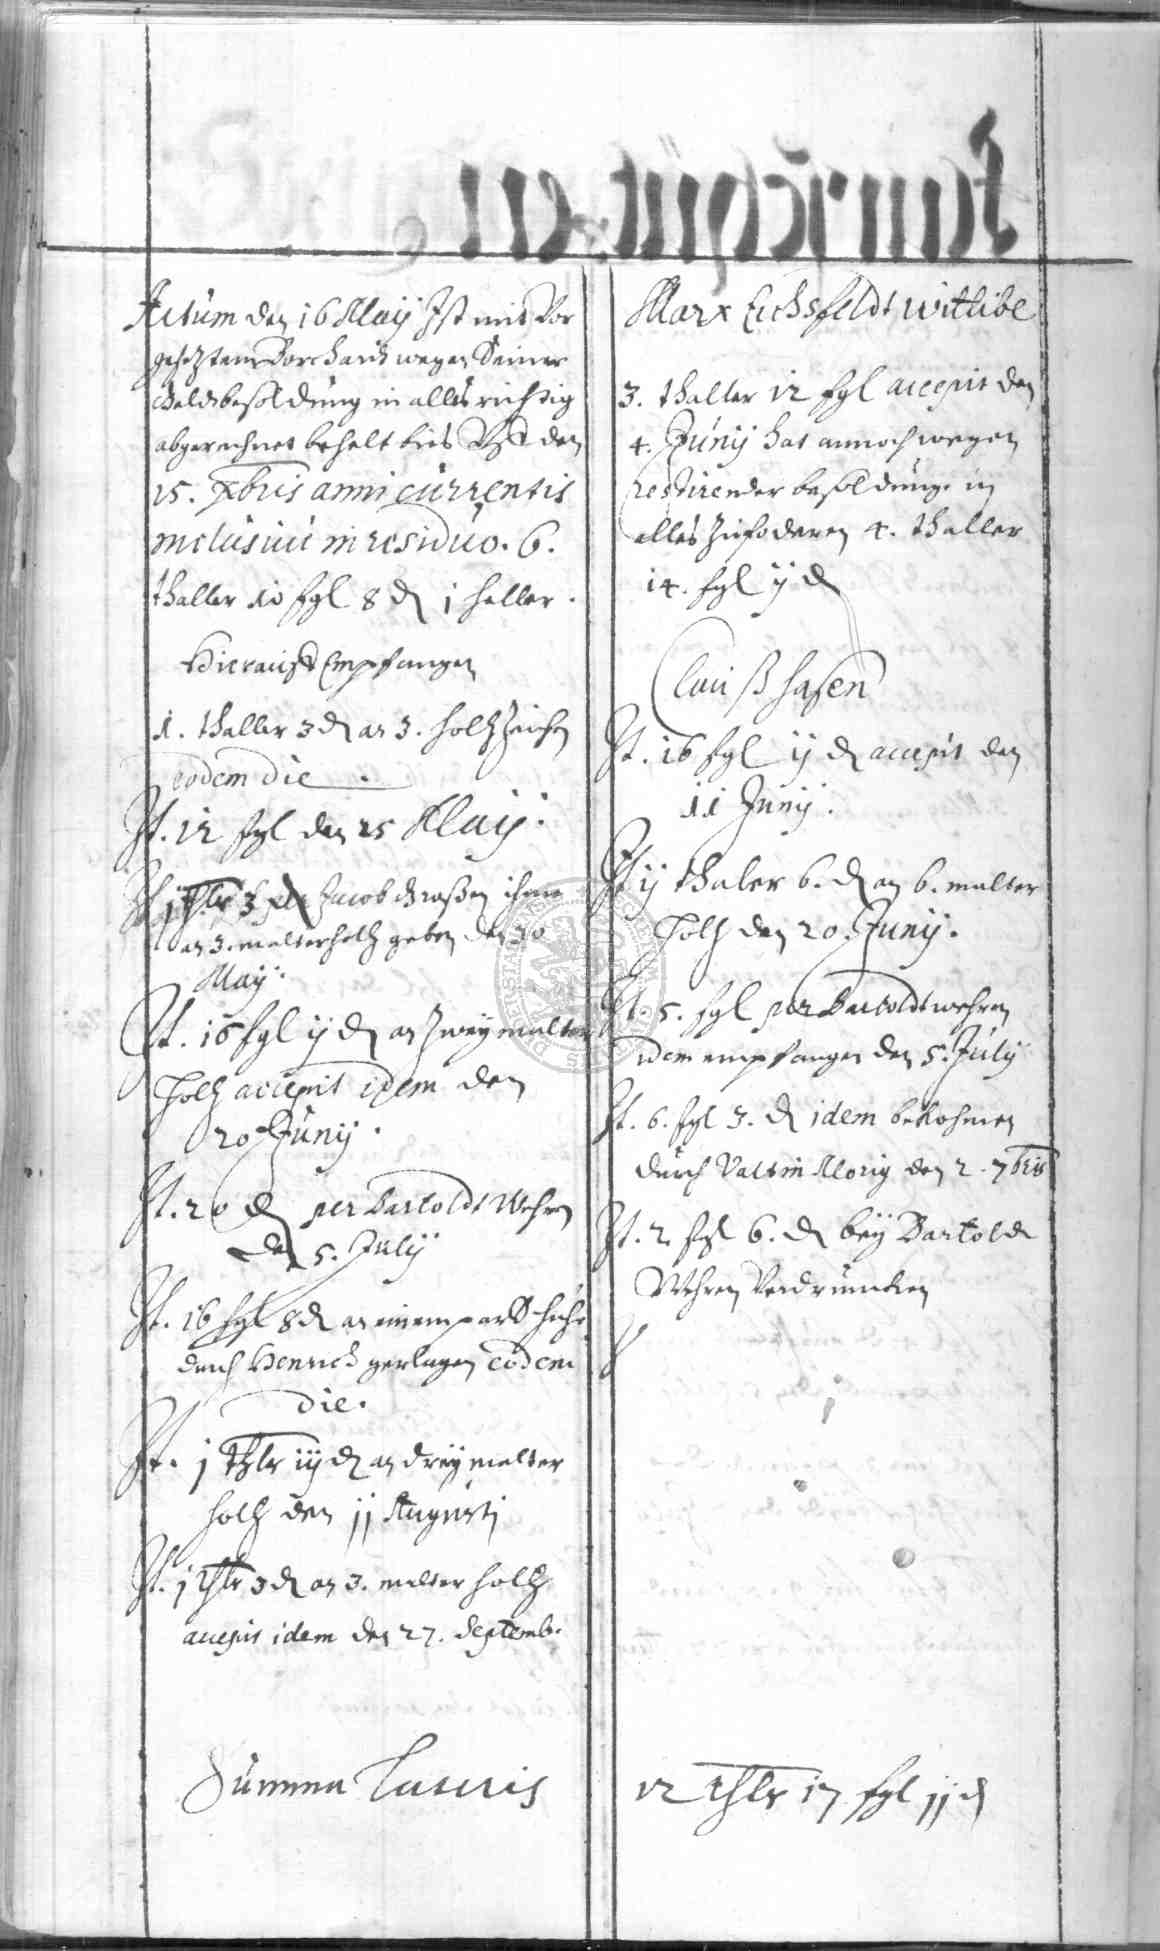 Actum den 16 Maij Ist mit Vor
gesetztem Borchardt wegen Seiner
Geldtbesoldung in alles richtig
abgerechnet behelt bies Vff den
15. xbris anni currentis
inclusiue in residuo. 6.
thaller 10 sgl 8 d 1 heller.
Hierauff Empfangen
1. thaller 3 d an 3. holtz
eodem die.
It. 12 sgl den 25 Maij.
It. 1 thlr 3 Jacob Großen ihme
an 3. malter holtz geben den 30
Maij.
It. 16 sgl ij d an zwey malter
Holtz accepit idem den
20 Junij.
It. 20 d per Bartoldt Wehren
den 5. Julij
It. 16 sgl 8 d an einem par Schuhe
durch Henrich gerlagen eodem
die.
It. j thlr iij d an drey malter
holtz den jj Augusti
It. j thlr 3 d an 3. malter holtz
accepit idem den 27. Septemb.
Summa Lateris
Marx Eichsfeldt wittibe
3. thaller 12 sgl accepit den
4. Junij hat annoch wegen
restirender besoldunge in
alles zufoderen 4. thaller
14. sgl ij d
Clauß hasen
It. 16 sgl ij d accepit den
11 Junij.
It ij thaler 6. d an 6. malter
Holtz den 20. Junij.
It. 5. sgl per Bartoldt wehren
idem empfangen den 5. Julij
It. 6. sgl 3. d idem bekohmen
durch Valtin den 2. 7bris
It. 2. sgl 6. d bey Bartoldt
Wehren Verdruncken
12 thlr 17 sgl jj d